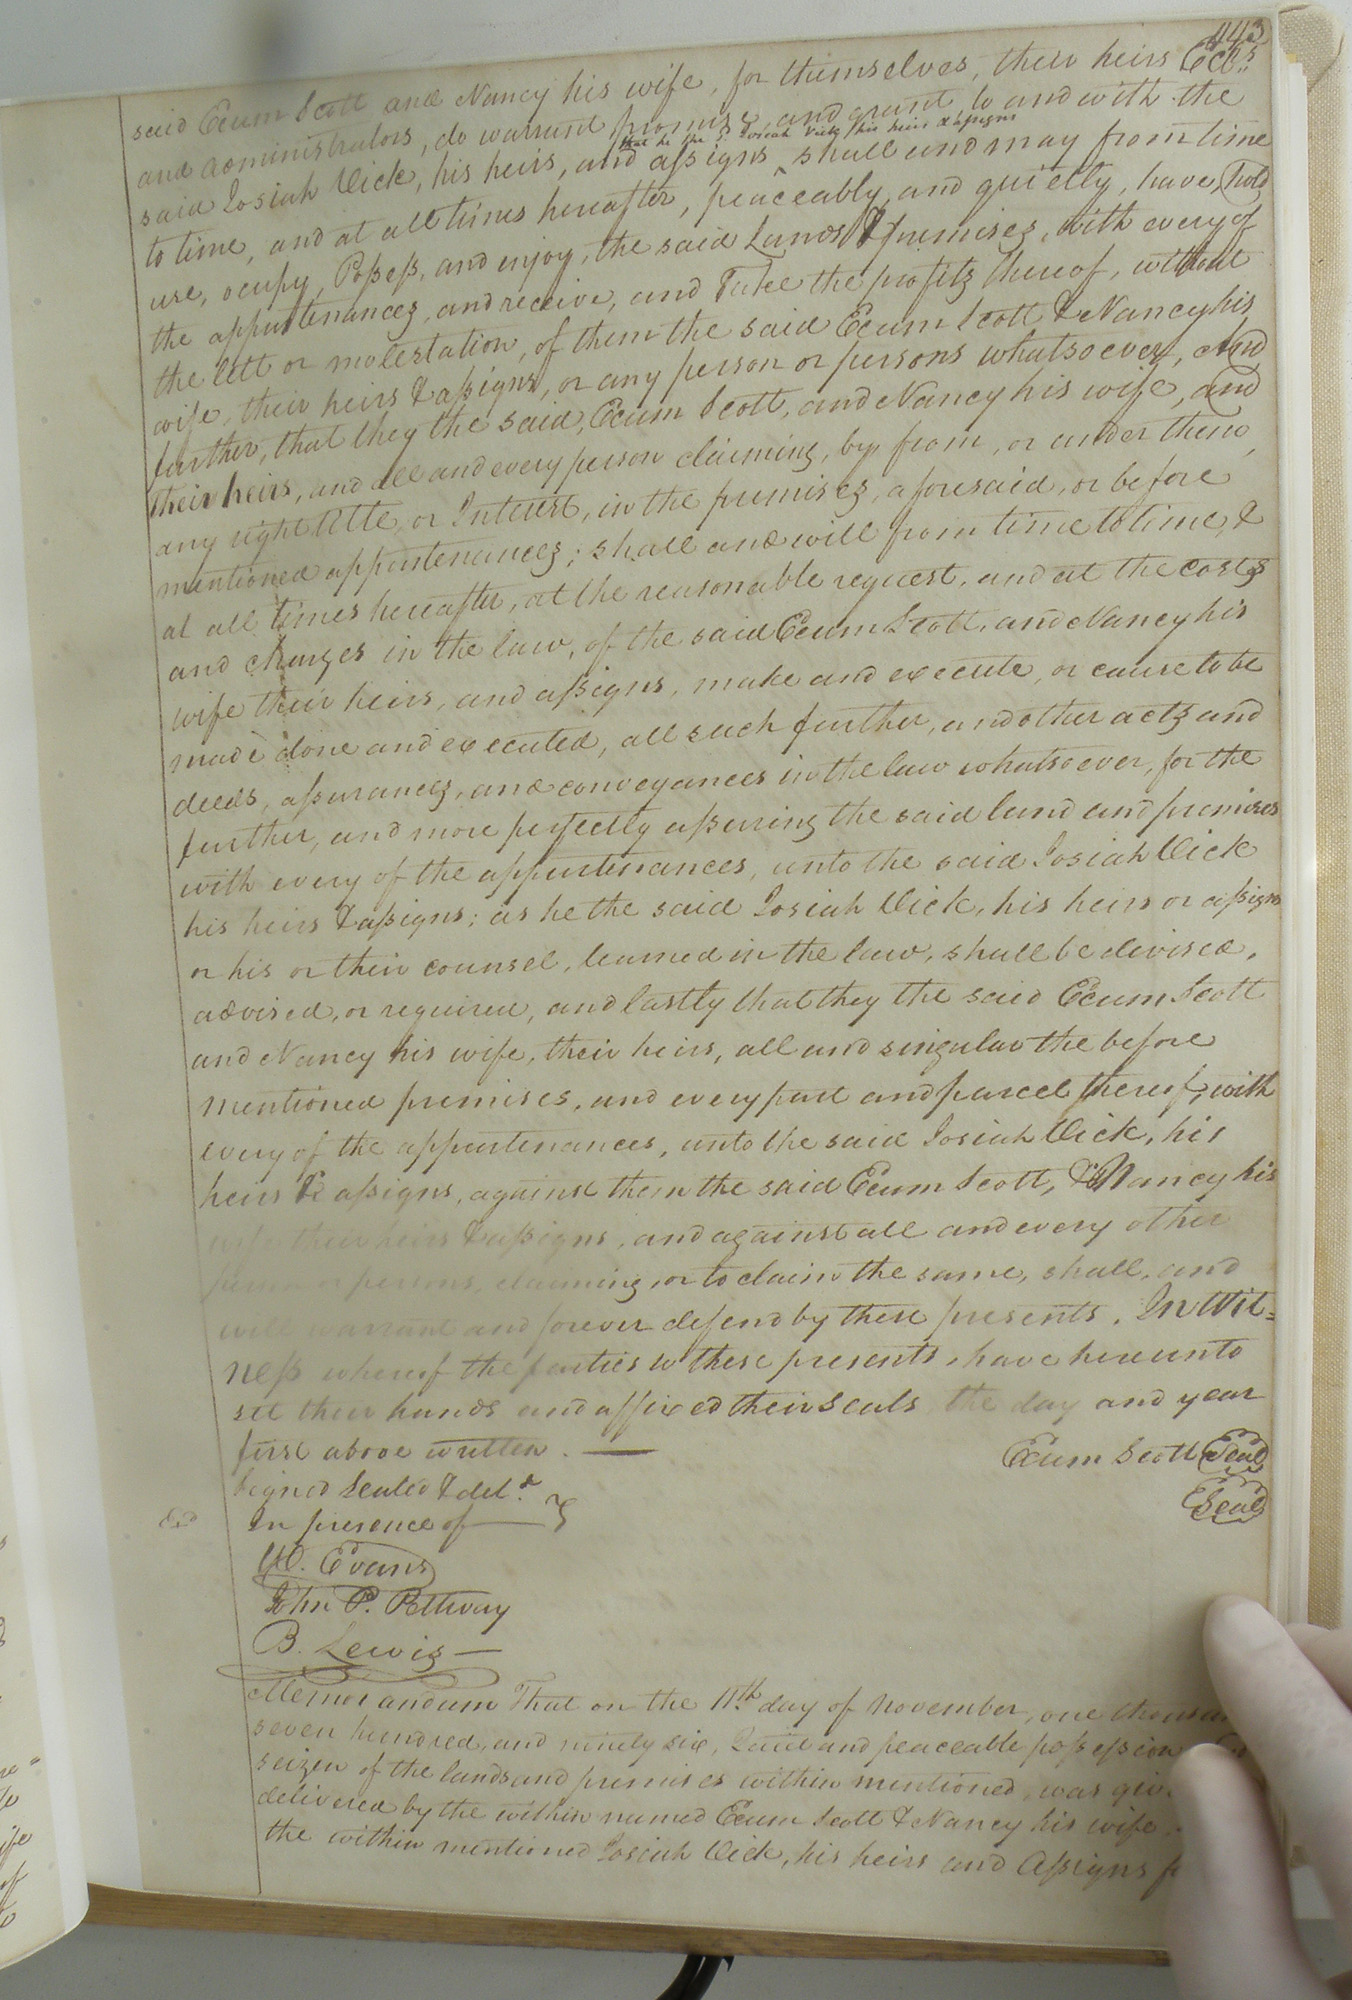 443
said Exum Scott and Nancy his wife, for themselves, their heirs Exrs
and administrators, do warrant promise, and grant to and with the
that he the sd Josiah Vick, his heirs & assigns
said Josiah Vick, his heirs, and assigns ‸ shall and may from time
to time, and at all times hereafter, peaceably and quietly, have, hold
use, ocupy, Possess, and enjoy, the said Lands & premises, with every of
the appurtenances, and receive, and Take the profits thereof, without
the lett or molestation, of them the said Exum Scott & Nancy his
wife, their heirs & assigns, or any person or persons whatsoever, And
further, that they the said, Exum Scott, and Nancy his wife, and
Their heirs, and all and every person claiming, by, from, or under them
any right title, or Interest, in the premises, aforesaid, or before
mentioned appurtenances; shall and will from time to time, &
at all times hereafter, at the reasonable request, and at the costs
and charges in the law, of the said Exum Scott, and Nancy his
wife their heirs, and assigns, make and execute, or cause to be
made done and executed, all such further, and other acts and
deeds, assurances, and conveyances in the law whatsoever, for the
further, and more perfectly assuring the said land and premises
with every of the appurtenances, unto the said Josiah Vick
his heirs & assigns; as he the said Josiah Vick, his heirs or assigns
or his or their counsel, learned in the law, shall be devised,
advised, or required, and lastly that they the said Exum Scott
and Nancy his wife, their heirs, all and singular the before
mentioned premises, and every part and parcel thereof, with
every of the appurtenances, unto the said Josiah Vick, his
heirs & assigns, against them the said Exum Scott, & Nancy his
wife their heirs & assigns, and against all and every other
person or persons, claiming, or to claim the same, shall, and
will warrant and forever defend by these presents. In Wit=
ness whereof the parties to these presents, have hereunto
set their hands and affixed their Seals the day and year
first above written.
Exum Scott Seal
Signed Sealed & deld
Seal
In presence of
W. Evans
John P. Pettway
B. Lewis
Memorandum That on the 11th day of November, one
seven hundred, and ninety six, Quiet and peaceable possession
seizen of the lands and premises within mentioned, was
delivered by the within named Exum Scott & Nancy his wife
the within mentioned Josiah Vick, his heirs and Assigns